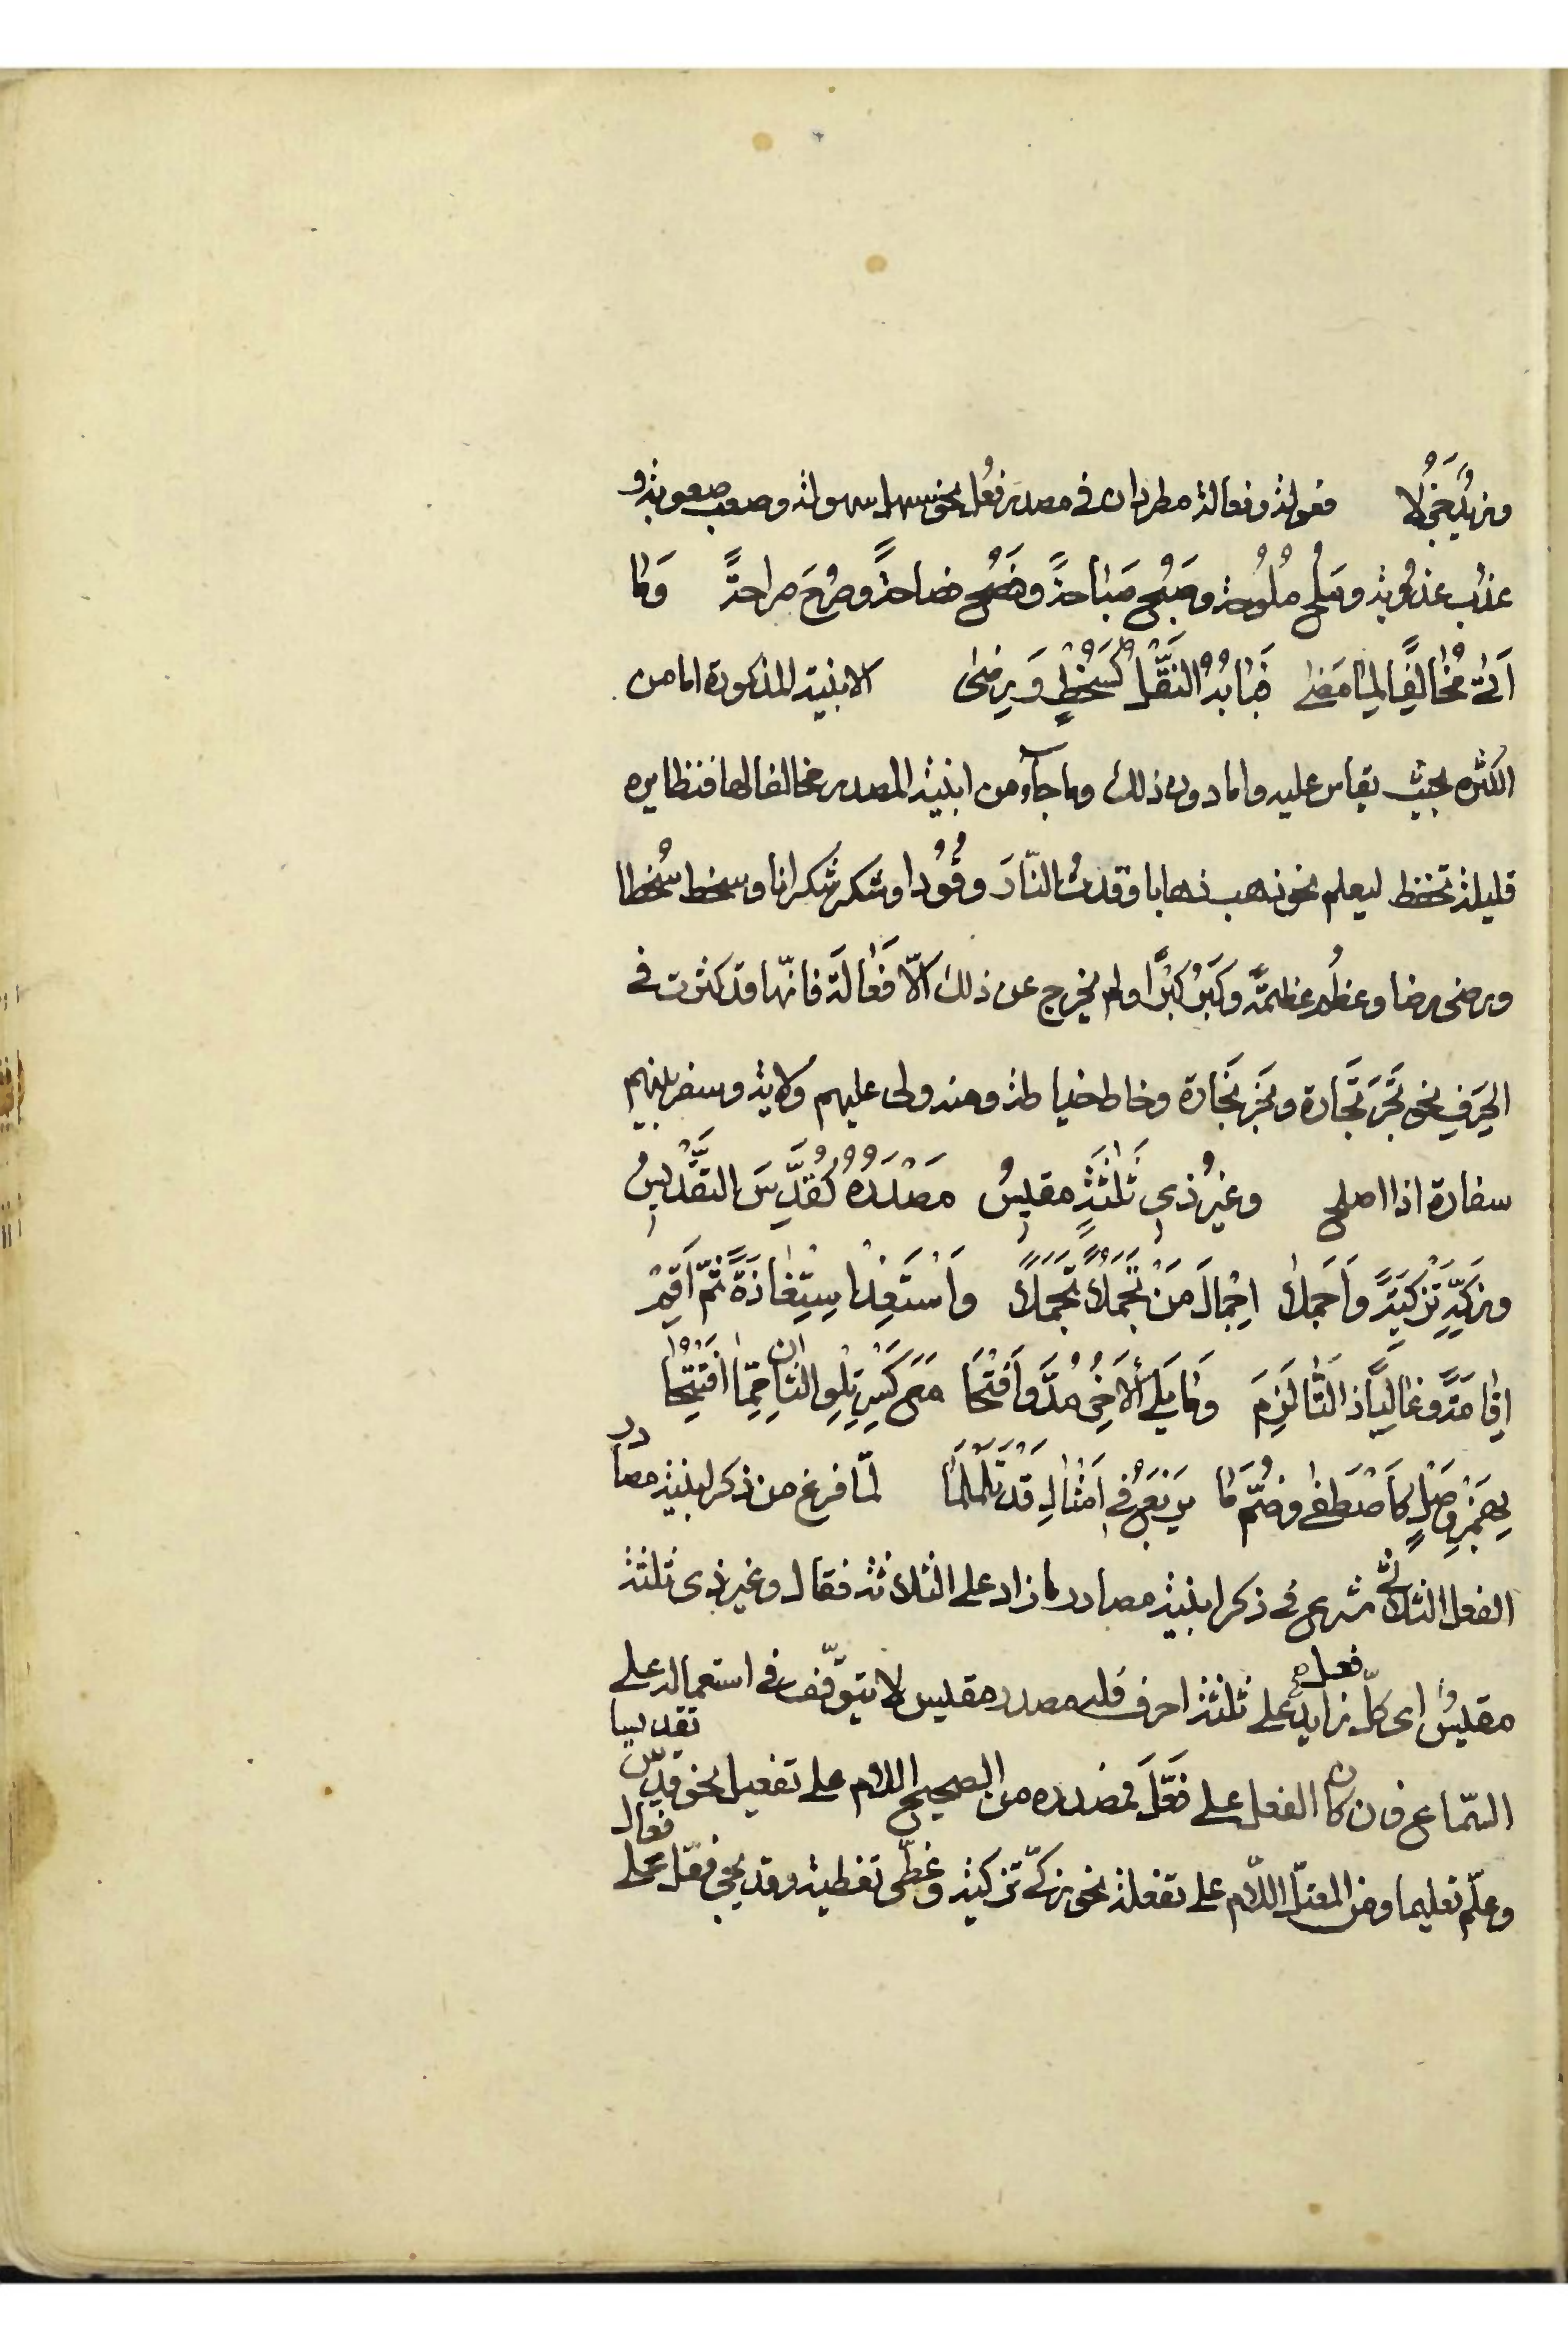 وزيدٌ جَزُلا فعولة وفعالة مطردان فى مصدر فعُل نحو سهل سهولة وصعب صعوبة و
عذُب عذُوبة وملُح مُلُوحة وصَبُح صَبَاحةً وفصُح فصاحةً وصرُحَ صراحةً وَمَا
اَتىٰ مُخَالِفًا لِمٰا مَضىٰ فَبٰابُهُ النَقْلُ كَسُخْطٍ وَرِضىٰ الابنية المذكورة اما من
الكثرة بحيث يقاس عليه واما دون ذلك وما جاء من ابنية المصدر مخالفا لها فنظايره
قليلة تحفظ ليعلم نحو ذهب ذهابا ووقدتُ النّارَ وقُوُدا وشكر شكرانا وسخط سُخطا
ورضى رضا وعظُم عظمةً وكَبُرَ كبْرًا ولم يخرج عن ذلك الّا فَعٰالَة فانّها قد كثرت فى
الحِرَفِ نحو تَجَرَ تَجَارة ونَجَرَ نَجَارة وخاط خياطة ومنه ولى عليهم ولاية وسفر بينهم
سفارة اذا اصلح وغيرُ ذى ثَلٰثَةٍ مقيسُ مَصْدَرُهُ كَقُدِّسَ التَقْديسُ
وزَكِّهِ تَزْكِيَةً وَاَجْمِلٰا اِجْمٰالَ مَنْ تَجَمُّلًا تَجَمَّلًا وَاسْتَعِذْ اسِتِعٰاذَةً ثُمّ اَقِمْ
اِقٰامَةً وغٰالِبًا ذَا التّٰا لَزِمَ وَمٰا يَلِى الْاَخِرُ مُدَّ وَافْتَحَا مَعَ كَسْرِ تِلْوِ الثٰانِ مِمّٰا افْتُتِحٰا
بِهَمْزِ وَصْلٍ كَاصْطَفٰى وضُمَّ مٰا يَرْبَعُ فى اَمْثٰالِ قَدْ تَلَمْلَمٰا لمّا فرغ من ذكر ابنية مصادر
الفعل الثلاثىّ شرع فى ذكر ابنية مصادر ما زاد على الثلاثة فقال وغير ذى ثلثة
مقيسُ اى كلّ فعل زايد على ثلثة احرف فله مصدر مقيس لا يتوقّف فى استعماله على
السّماع فان كان الفعل على فَعَّلَ فمصدره من الصحيح اللام على تفعيل نحو قدّس تقديسا
وعلّم تعليما ومن المعتلّ اللّام على تفعلة نحو زكّى تزكية وغطّى تغطية وقد يجى فعّل على فعال